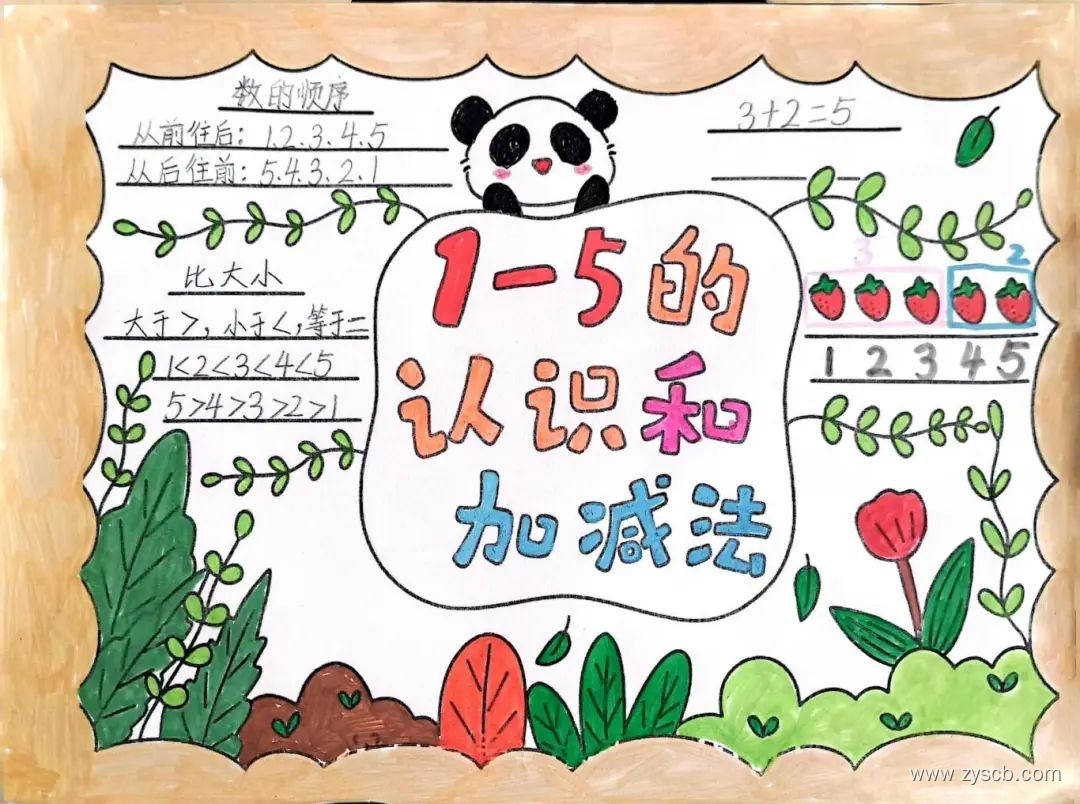 数的顺序
从前往后：1.2.3.4.5
从后往前：5.4.3.2.1
比大小
大于>，小于<，等于=
1<2<3<4<5
5>4>3>2>1
1-5的
认识和
加减法
3+2=5
3 2
1 2 3 4 5
www.zyscb.com